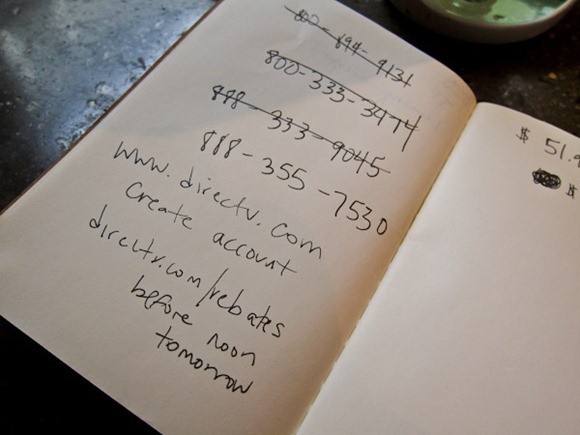 800-694-9131
800-333-3474
888-333-9045
888-355-7530
www.directv.com
create account
directv.com/rebates
before noon
tomorrow
$ 51.9
$